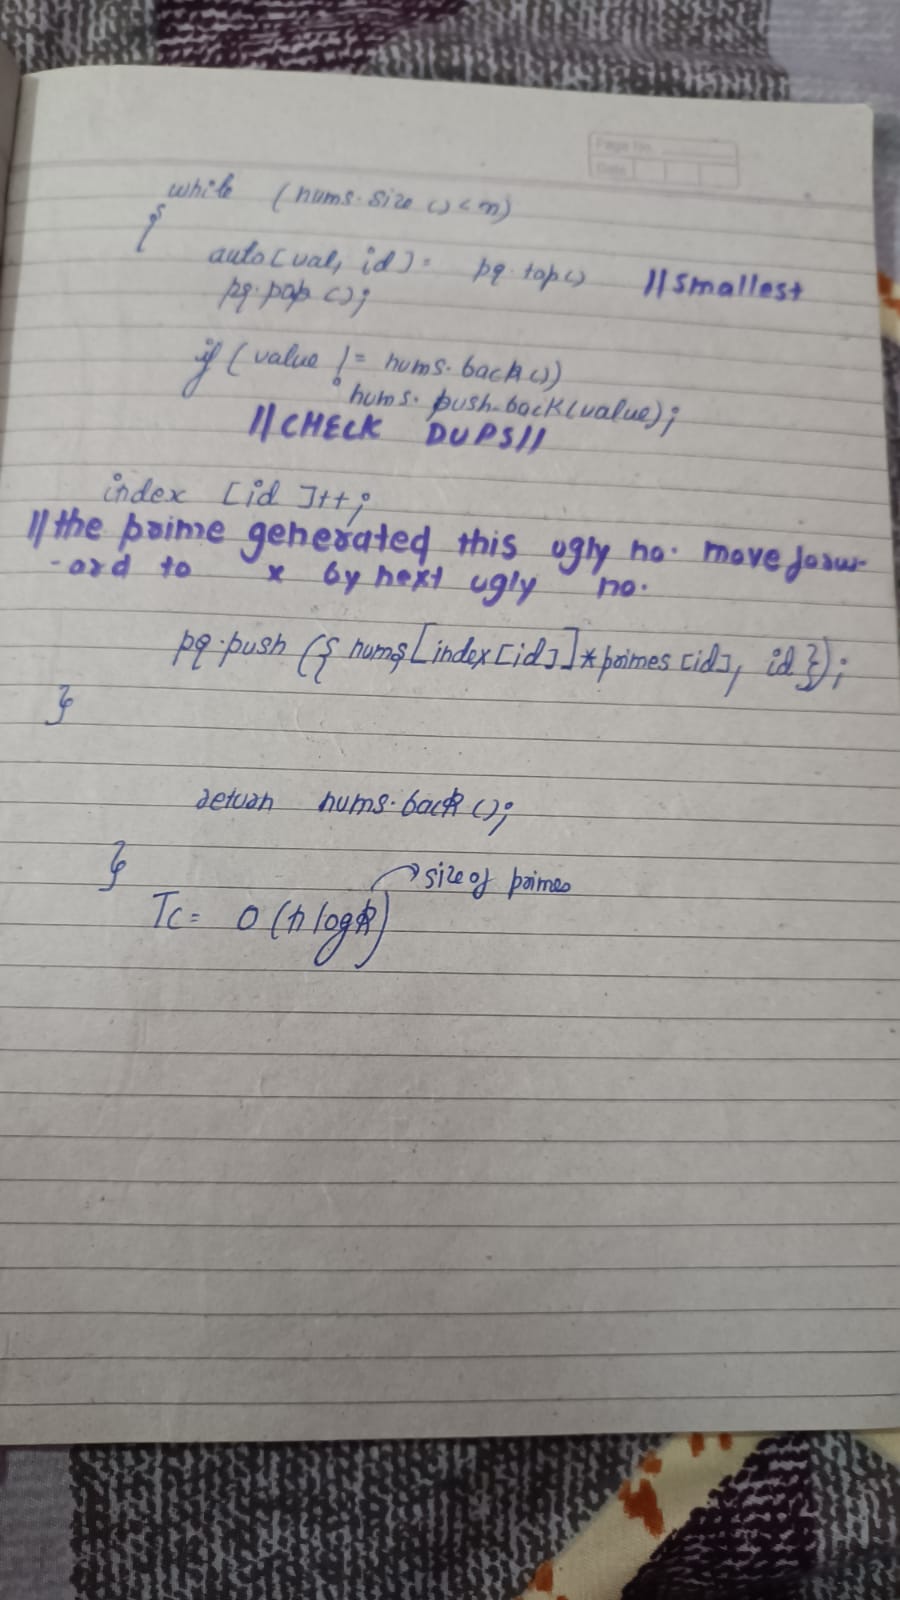 Page No.
Date
while (nums.size () < n)
{
auto [val, id] = pq.top() //smallest
pq.pop ();
if (value != nums.back())
nums.push_back(value);
//CHECK DUPS//
index [id]++;
//the prime generated this ugly no. move forw-
-ard to x by next ugly no.
pq.push ({ nums[index[id]]*primes[id], id });
}
return nums.back();
}
size of primes
TC = O(n log k)